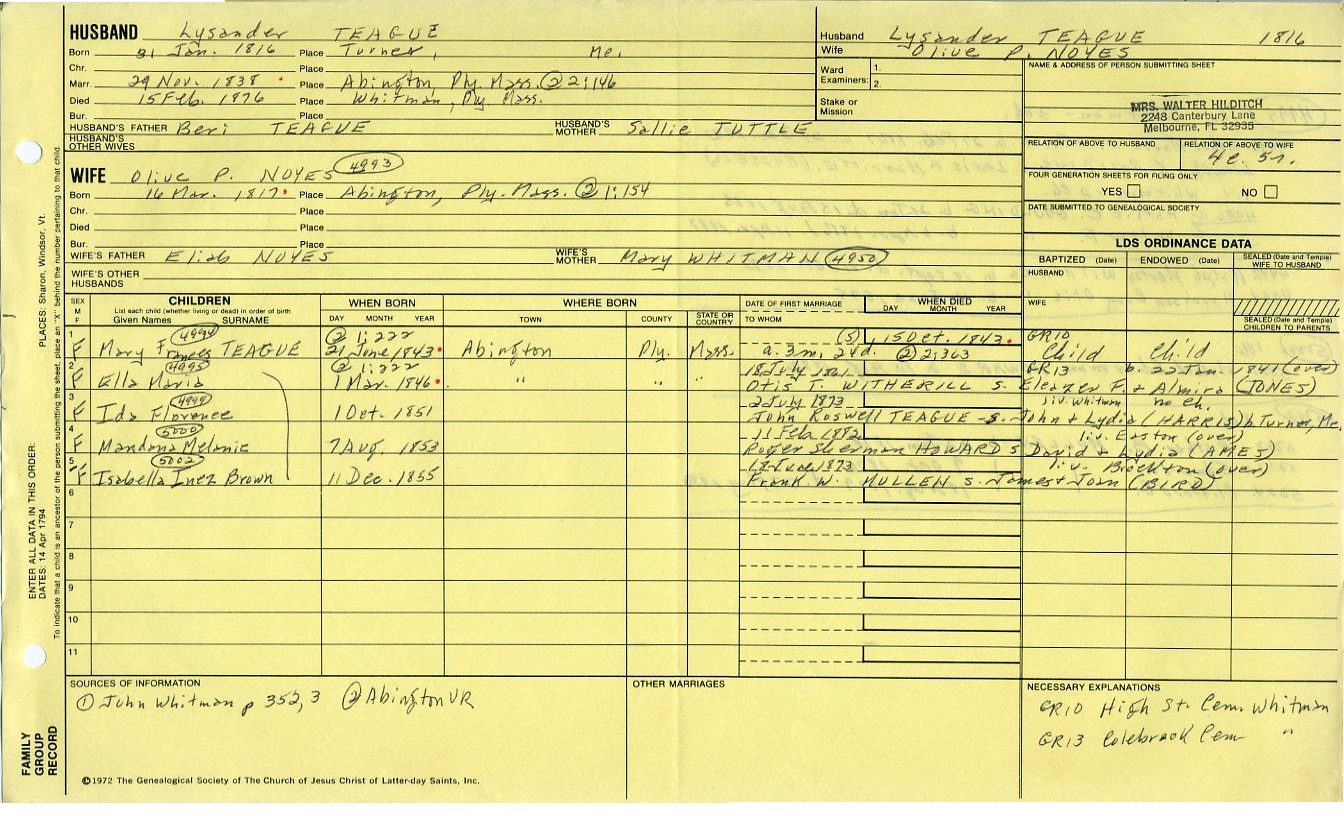 HUSBAND Lysander TEAGUE
Born 31 Jan. 1816 Place Turner, Me.
Chr. Place
Marr. 29 Nov. 1838 Place Abington, Ply. Mass. ② 2:146
Died 15 Feb. 1876 Place Whitman, Ply Mass.
Bur. Place
HUSBAND'S FATHER Beri TEAGUE HUSBAND'S MOTHER Sallie TUTTLE
HUSBAND'S OTHER WIVES
WIFE Olive P. NOYES 4993
Born 16 Mar. 1817 Place Abington, Ply. Mass. ② 1:154
Chr. Place
Died Place
Bur. Place
WIFE'S FATHER Eliab NOYES WIFE'S MOTHER Mary WHITMAN 4950
WIFE'S OTHER HUSBANDS
Husband Lysander TEAGUE 1816
Wife Olive P. NOYES
Ward Examiners: 1.
2.
Stake or Mission
NAME & ADDRESS OF PERSON SUBMITTING SHEET
MRS. WALTER HILDITCH
2248 Canterbury Lane
Melbourne, FL 32935
RELATION OF ABOVE TO HUSBAND RELATION OF ABOVE TO WIFE
4c. 5r.
FOUR GENERATION SHEETS FOR FILING ONLY
YES NO
DATE SUBMITTED TO GENEALOGICAL SOCIETY
LDS ORDINANCE DATA
BAPTIZED (Date) ENDOWED (Date) SEALED (Date and Temple) WIFE TO HUSBAND
HUSBAND
WIFE
SEALED (Date and Temple) CHILDREN TO PARENTS
SEX M F CHILDREN WHEN BORN WHERE BORN DATE OF FIRST MARRIAGE WHEN DIED
List each child (whether living or dead) in order of birth
Given Names SURNAME DAY MONTH YEAR TOWN COUNTY STATE OR COUNTRY TO WHOM DAY MONTH YEAR
1 4994 ② 1:222 (S) 15 Oct. 1843 GR10
F Mary Frances TEAGUE 21 June 1843 Abington Ply. Mass. a. 3m, 24d. ② 2:363 Child Child
2 4995 ② 1:222 18 July 1861 GR13 b. 22 Jan. 1841 (over)
F Ella Maria 1 Mar. 1846 " " " Otis T. WITHERILL s. Eleazer F. & Almira (JONES)
3 4999 2 July 1873 liv. Whitman no ch.
F Ida Florence 1 Oct. 1851 John Roswell TEAGUE s. John & Lydia (HARRIS) b. Turner, Me.
4 5000 11 Feb. 1892 liv. Easton (over)
F Mandana Melanie 7 Aug. 1853 Roger Sherman HOWARD s David & Lydia (AMES)
5 5002 18 June 1873 liv. Brockton (over)
F Isabella Inez Brown 11 Dec. 1855 Frank W. MULLEN s. James & Joan (BIRD)
6
7
8
9
10
11
SOURCES OF INFORMATION
① John Whitman p 352, 3 ② Abington VR
OTHER MARRIAGES
NECESSARY EXPLANATIONS
GR10 High St. Cem. Whitman
GR13 Colebrook Cem "
©1972 The Genealogical Society of The Church of Jesus Christ of Latter-day Saints, Inc.
FAMILY GROUP RECORD
ENTER ALL DATA IN THIS ORDER:
DATES: 14 Apr 1794 PLACES: Sharon, Windsor, Vt.
To indicate that a child is an ancestor of the person submitting the sheet, place an "X" behind the number pertaining to that child.